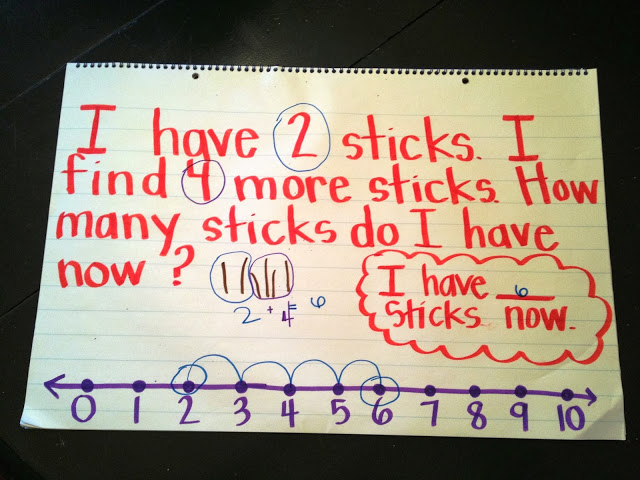 I have 2 sticks. I
find 4 more sticks. How
many sticks do I have
now?
2 + 4 = 6
I have 6
sticks now.
0 1 2 3 4 5 6 7 8 9 10